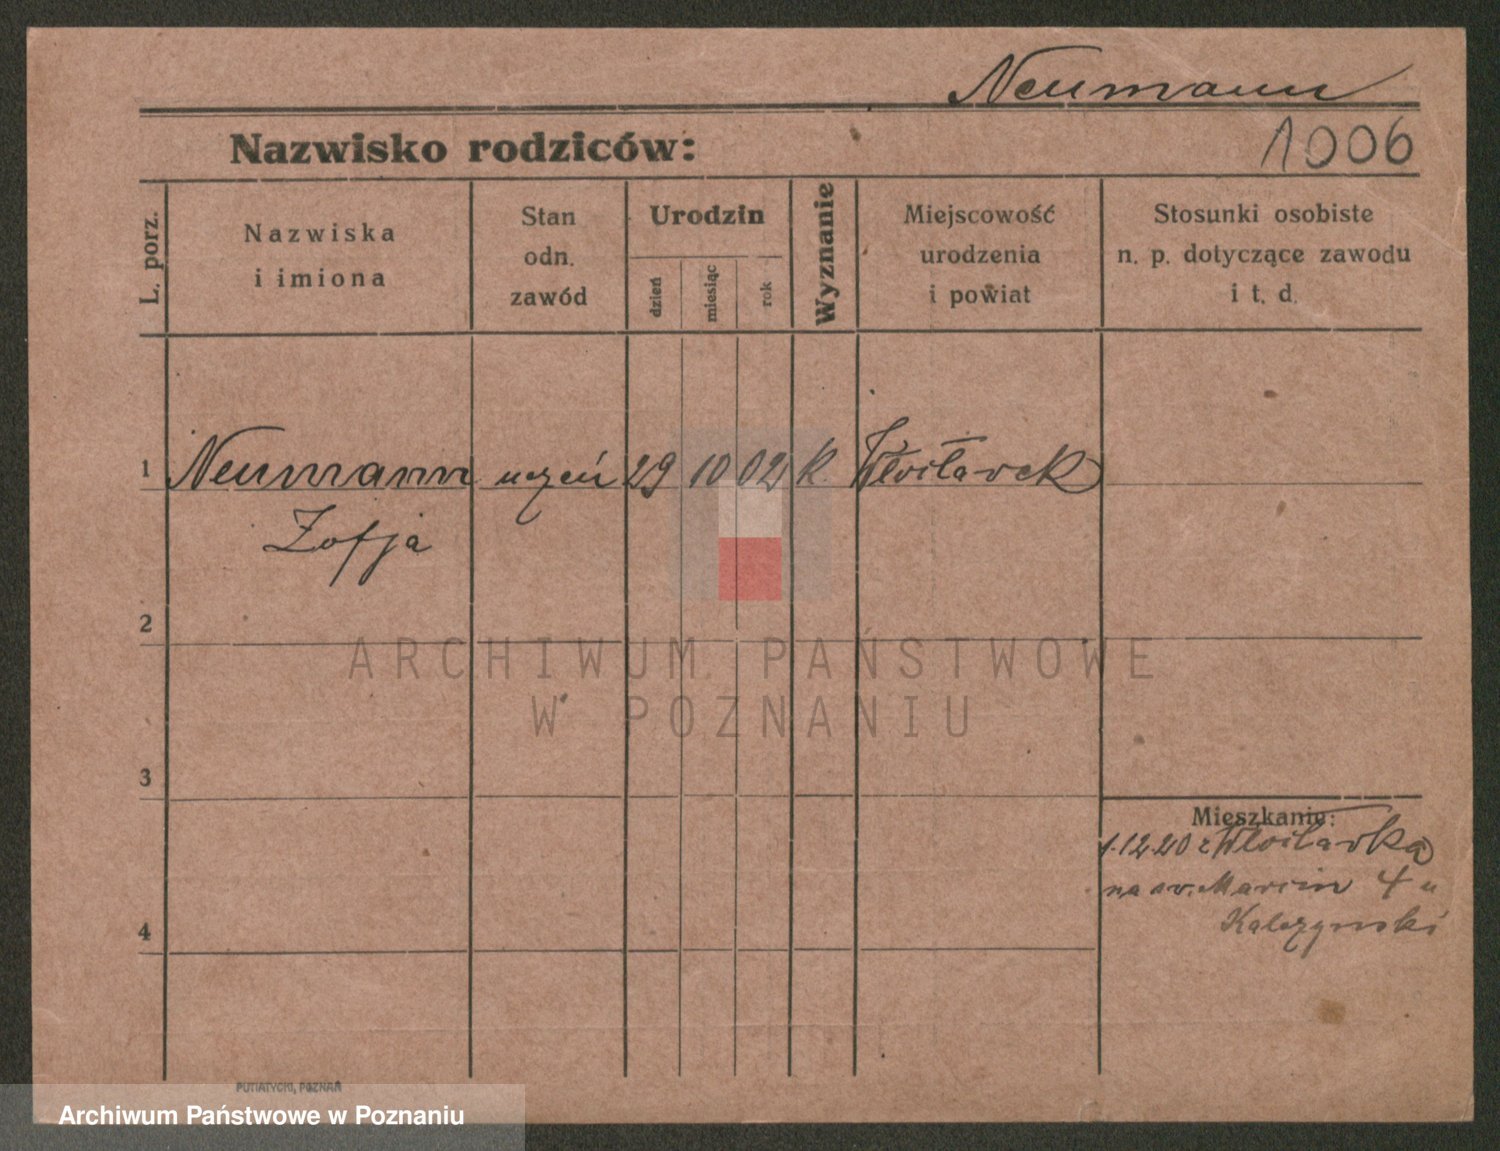 Neumann
Nazwisko rodziców:
1006
L. porz.
Nazwiska
i imiona
Stan
odn.
zawód
Urodzin
dzień
miesiąc
rok
Wyznanie
Miejscowość
urodzenia
i powiat
Stosunki osobiste
n. p. dotyczące zawodu
i t. d.
1 Neumann uczeń 29 10 02 k. Włocławek
Zofja
2
ARCHIWUM PAŃSTWOWE
W POZNANIU
3
Mieszkanie:
1.12.20 z Włocławka
na św. Marcin 4 u
4
PUTIATYCKI, POZNAŃ
Archiwum Państwowe w Poznaniu